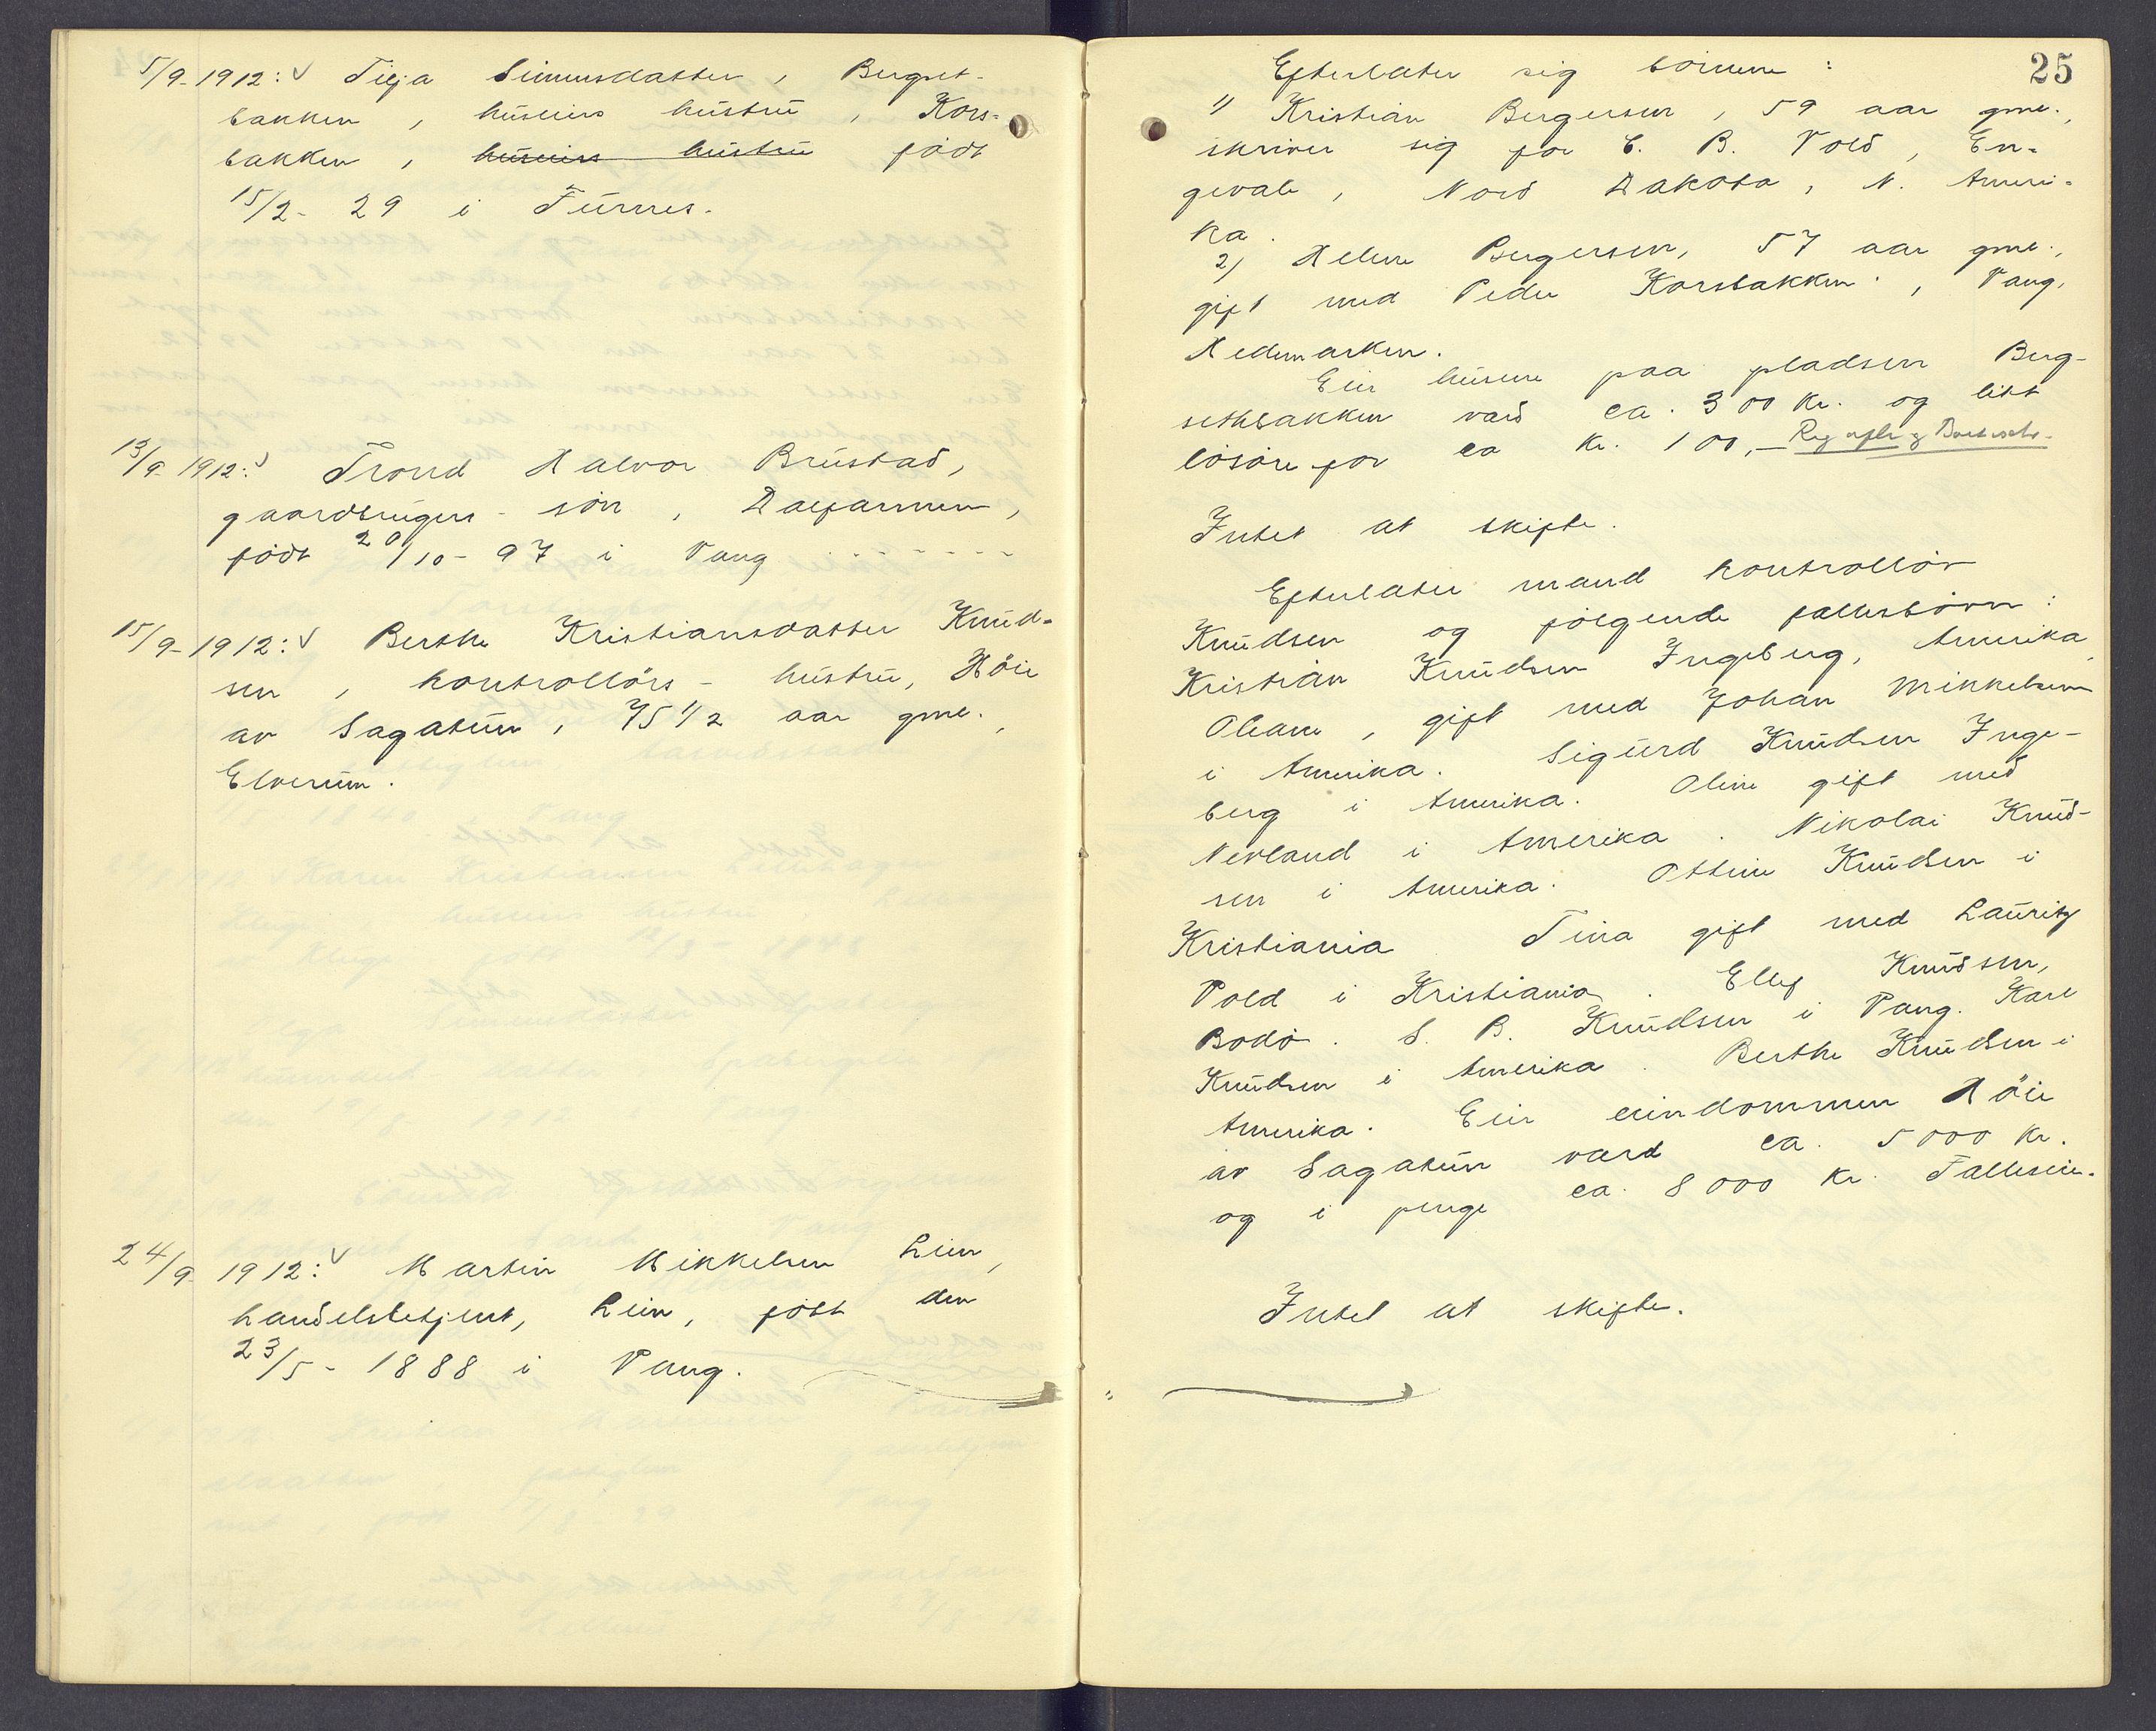 5/9-1912: √ Tilja Simensdatter, Bergset-
bakken, huseiers hustru, Kors-
bakken, huseiers hustru född
15/2-29 i Furnes.
13/9-1912: √ Trond Halvor Brustad,
gaardbrugers-sön, Dalfarmen,
född 20/10-97 i Vang
15/9-1912: √ Berthe Kristiansdatter Knud-
sen, kontrollörs-hustru, Höie
av Sagatun, 75 1/2 aar gml.,
Elverum.
24/9-1912: √ Martin Mikkelsen Lien,
handelsbetjent, Lien, född den
23/5-1888 i Vang.
25
Efterlater sig börnene:
1) Kristian Bergersen, 59 aar gml.,
skriver sig for C. B. Vold, En-
gevale, Nord Dakota, N. Ameri-
ka.
2) Helene Bergersen, 57 aar gml.,
gift med Peder Korsbakken, Vang,
Hedemarken.
Eier husene paa pladsen Berg-
sethbakken værd ca. 300 kr. og litt
lösöre for ca kr. 100,-
Intet at skifte.
Efterlater mand kontrollör
Knudsen og fölgende fællesbörn:
Kristian Knudsen Ingeberg, Amerika,
Oleane, gift med Johan Mikkelsen
i Amerika. Sigurd Knudsen Inge-
berg i Amerika. Oline gift med
Nevland i Amerika. Nikolai Knud-
sen i Amerika. Ottine Knudsen i
Kristiania Tina gift med Lauritz
Vold i Kristiania. Ellef Knudsen,
Bodö. S. B. Knudsen i Vang. Karl
Knudsen i Amerika. Berthe Knudsen i
Amerika. Eier eiendommen Höie
av Sagatun værd ca. 5000 kr.
og i penge ca. 8000 kr. Fælleseie.
Intet at skifte.